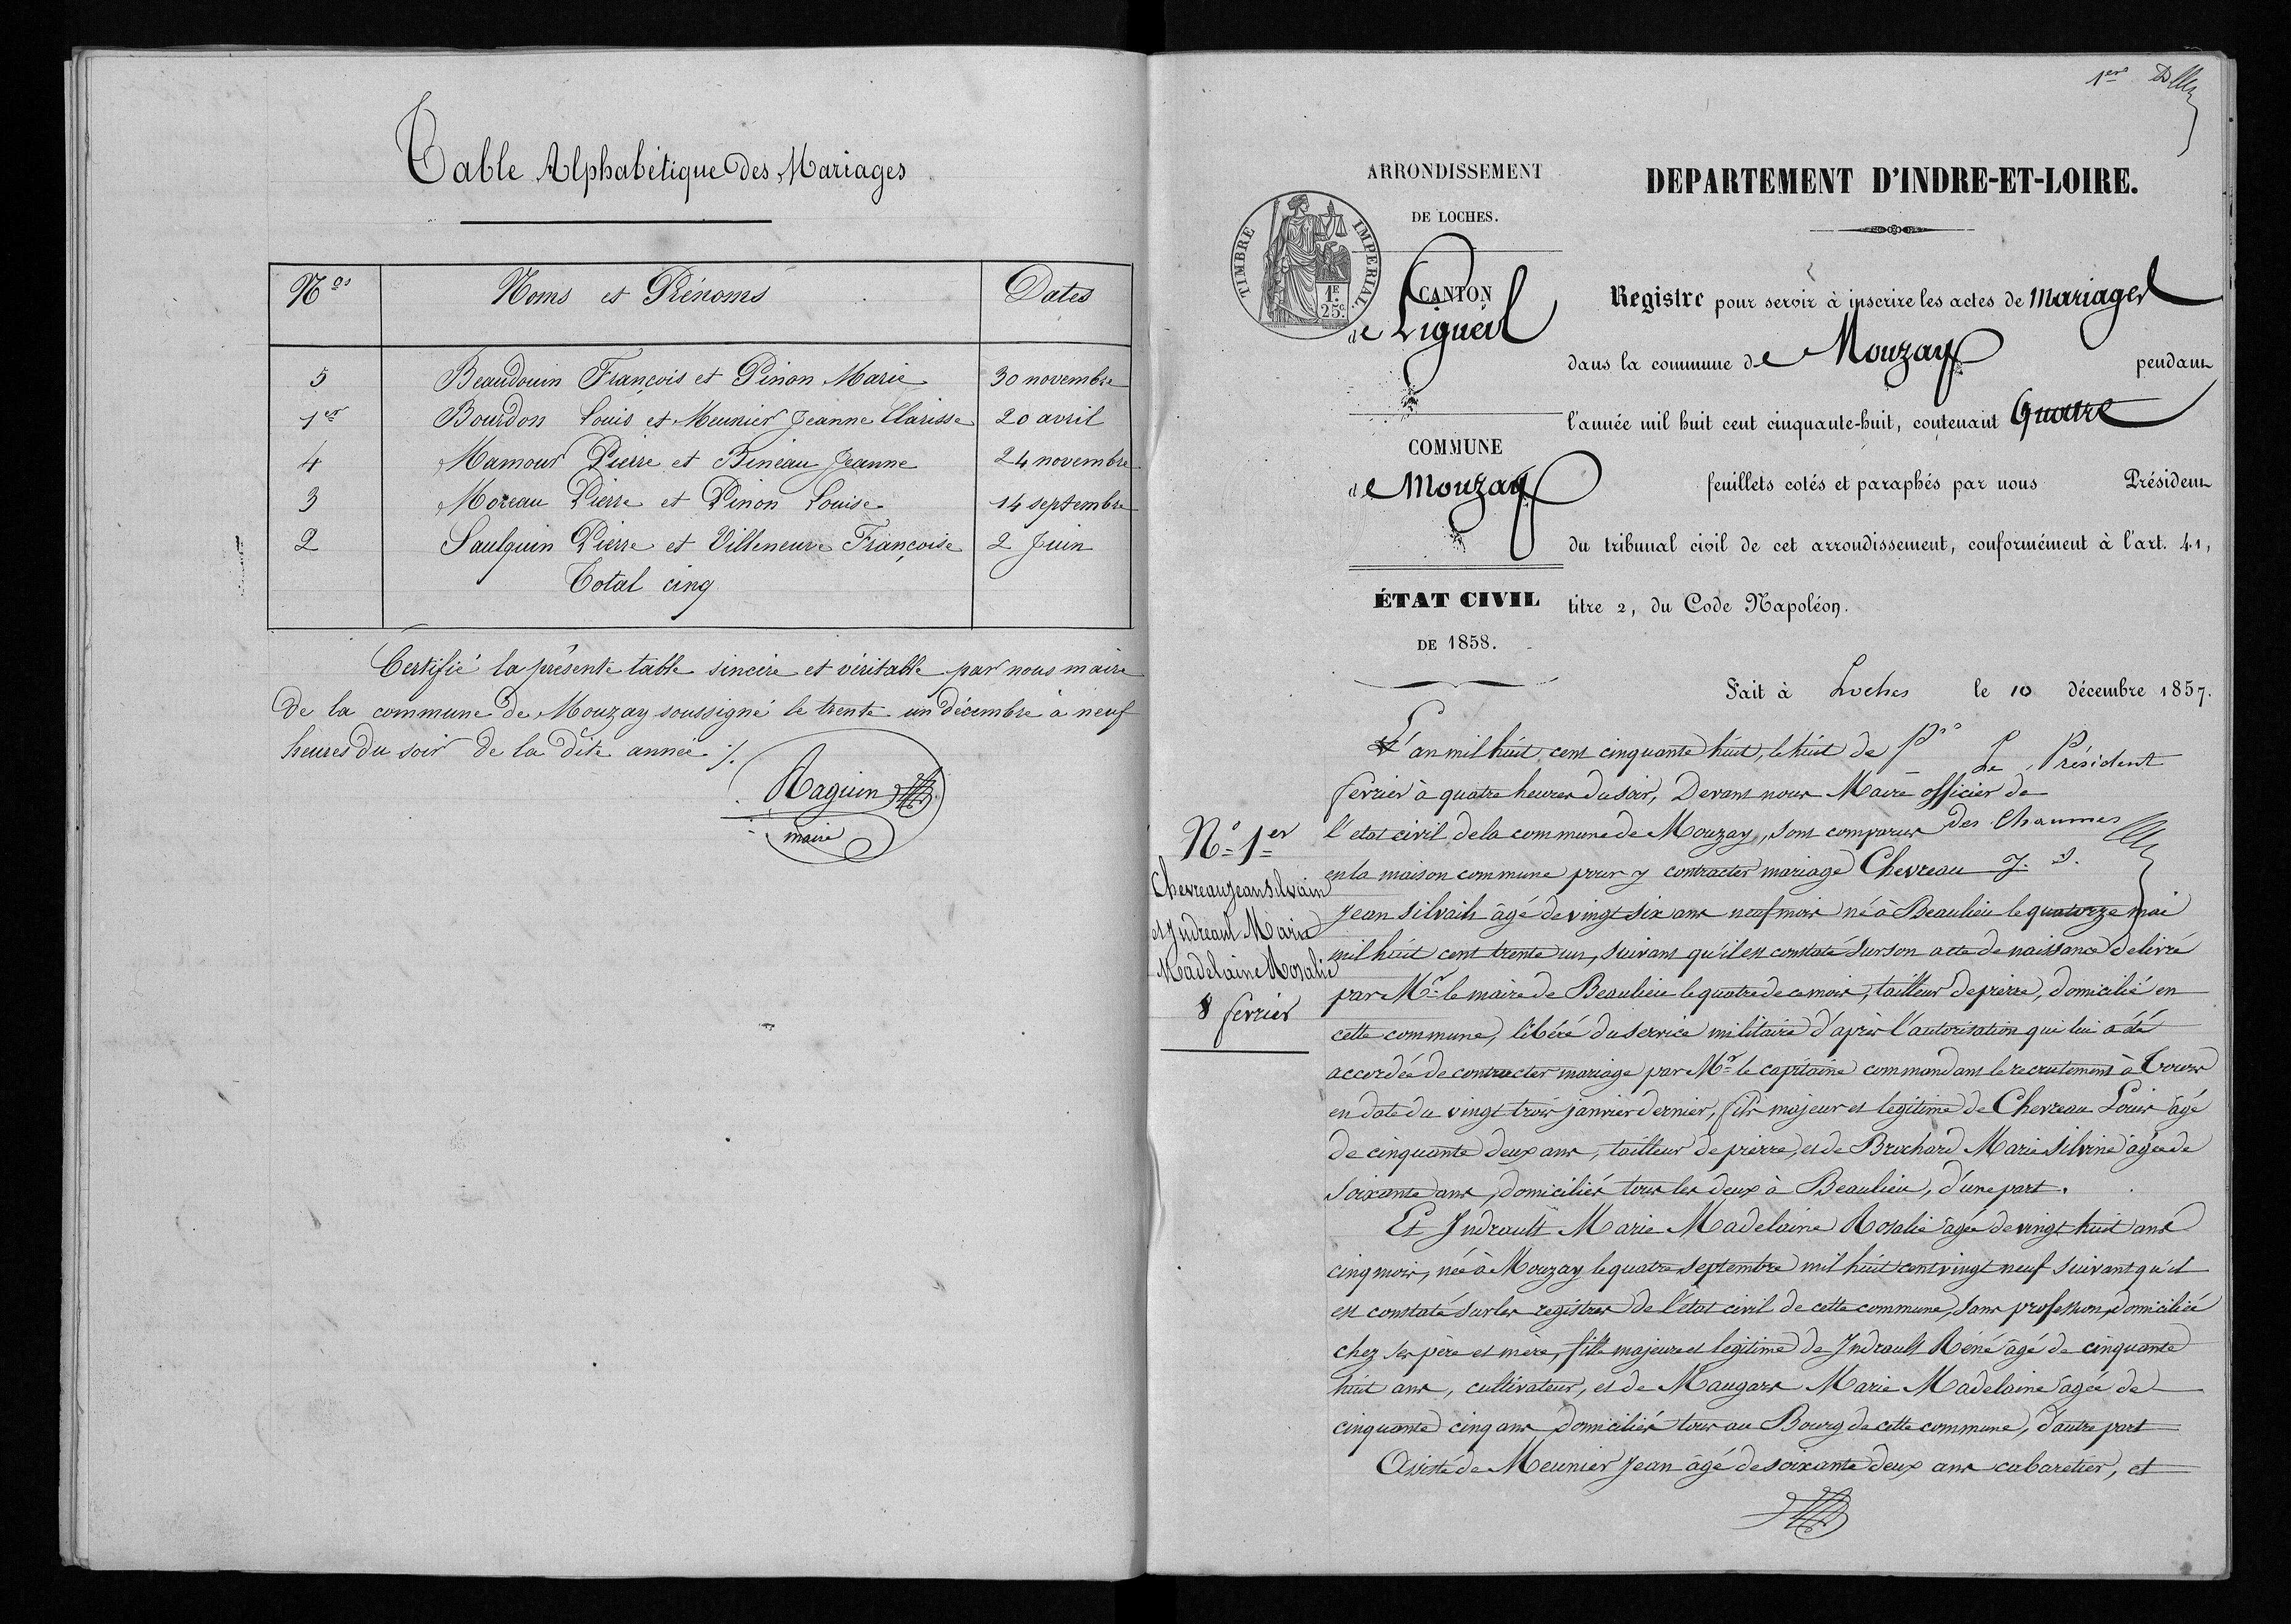 Table Alphabétique des Mariages
Nos Noms et Prénoms Dates
5 Beaudouin François et Pinon Marie 30 novembre
1er Bourdon Louis et Meunier Jeanne Clarisse 20 avril
4 Mamour Pierre et Bineau Jeanne 24 novembre
3 Moreau Pierre et Pinon Louise 14 septembre
2 Saulquin Pierre et Villeneuve Françoise 2 Juin
Total cinq
Certifié la présente table sincère et véritable par nous maire
de la commune de Mouzay soussigné le trente un décembre à neuf
heures du soir de la dite année ./.
Raguin
maire
1er
ARRONDISSEMENT
DE LOCHES.
TIMBRE IMPERIAL.
1F.
25c.
CANTON
de Ligueil
COMMUNE
de Mouzay
ÉTAT CIVIL
DE 1858.
DEPARTEMENT D'INDRE-ET-LOIRE.
Registre pour servir à inscrire les actes de Mariages
dans la commune de Mouzay pendant
l'année mil huit cent cinquante-huit, contenant Quatre
feuillets cotés et paraphés par nous Président
du tribunal civil de cet arrondissement, conformément à l'art. 41,
titre 2, du Code Napoléon.
Fait à Loches le 10 décembre 1857.
Le Président
des Chaumes
N° 1er
Chevreau Jean Silvain
et Indreault Marie
Madelaine Rosalie
8 fevrier
L'an mil huit cent cinquante huit, le huit de
fevrier à quatre heures du soir, Devant nous Maire officier de
l'etat civil de la commune de Mouzay, sont comparus
en la maison commune pour y contracter mariage Chevreau
Jean Silvain âgé de vingt six ans neuf mois né à Beaulieu le quatorze mai
mil huit cent trente un, suivant qu'il est constaté sur son acte de naissance delivré
par Mr le maire de Beaulieu le quatre de ce mois, tailleur de pierre, domicilié en
cette commune, libéré du service militaire d'après l'autorisation qui lui a été
accordée de contracter mariage par Mr le capitaine commandant le recrutement à Tours
en date du vingt trois janvier dernier, fils majeur et legitime de Chevreau Louis âgé
de cinquante deux ans, tailleur de pierre, et de Brochard Marie Silvine agée de
soixante ans, domiciliés tous les deux à Beaulieu, d'une part.
Et Indrault Marie Madelaine Rosalie agée de vingt huit ans
cinq mois, née à Mouzay le quatre septembre mil huit cent vingt neuf suivant qu'il
est constaté sur les registres de l'état civil de cette commune, sans profession, domiciliée
chez ses père et mère, fille majeure et legitime de Indrault Réné âgé de cinquante
huit ans, cultivateur, et de Maugars Marie Madelaine agée de
cinquante cinq ans domiciliés tous au Bourg de cette commune, d'autre part
Assisté de Meunier Jean âgé de soixante deux ans cabaretier, et